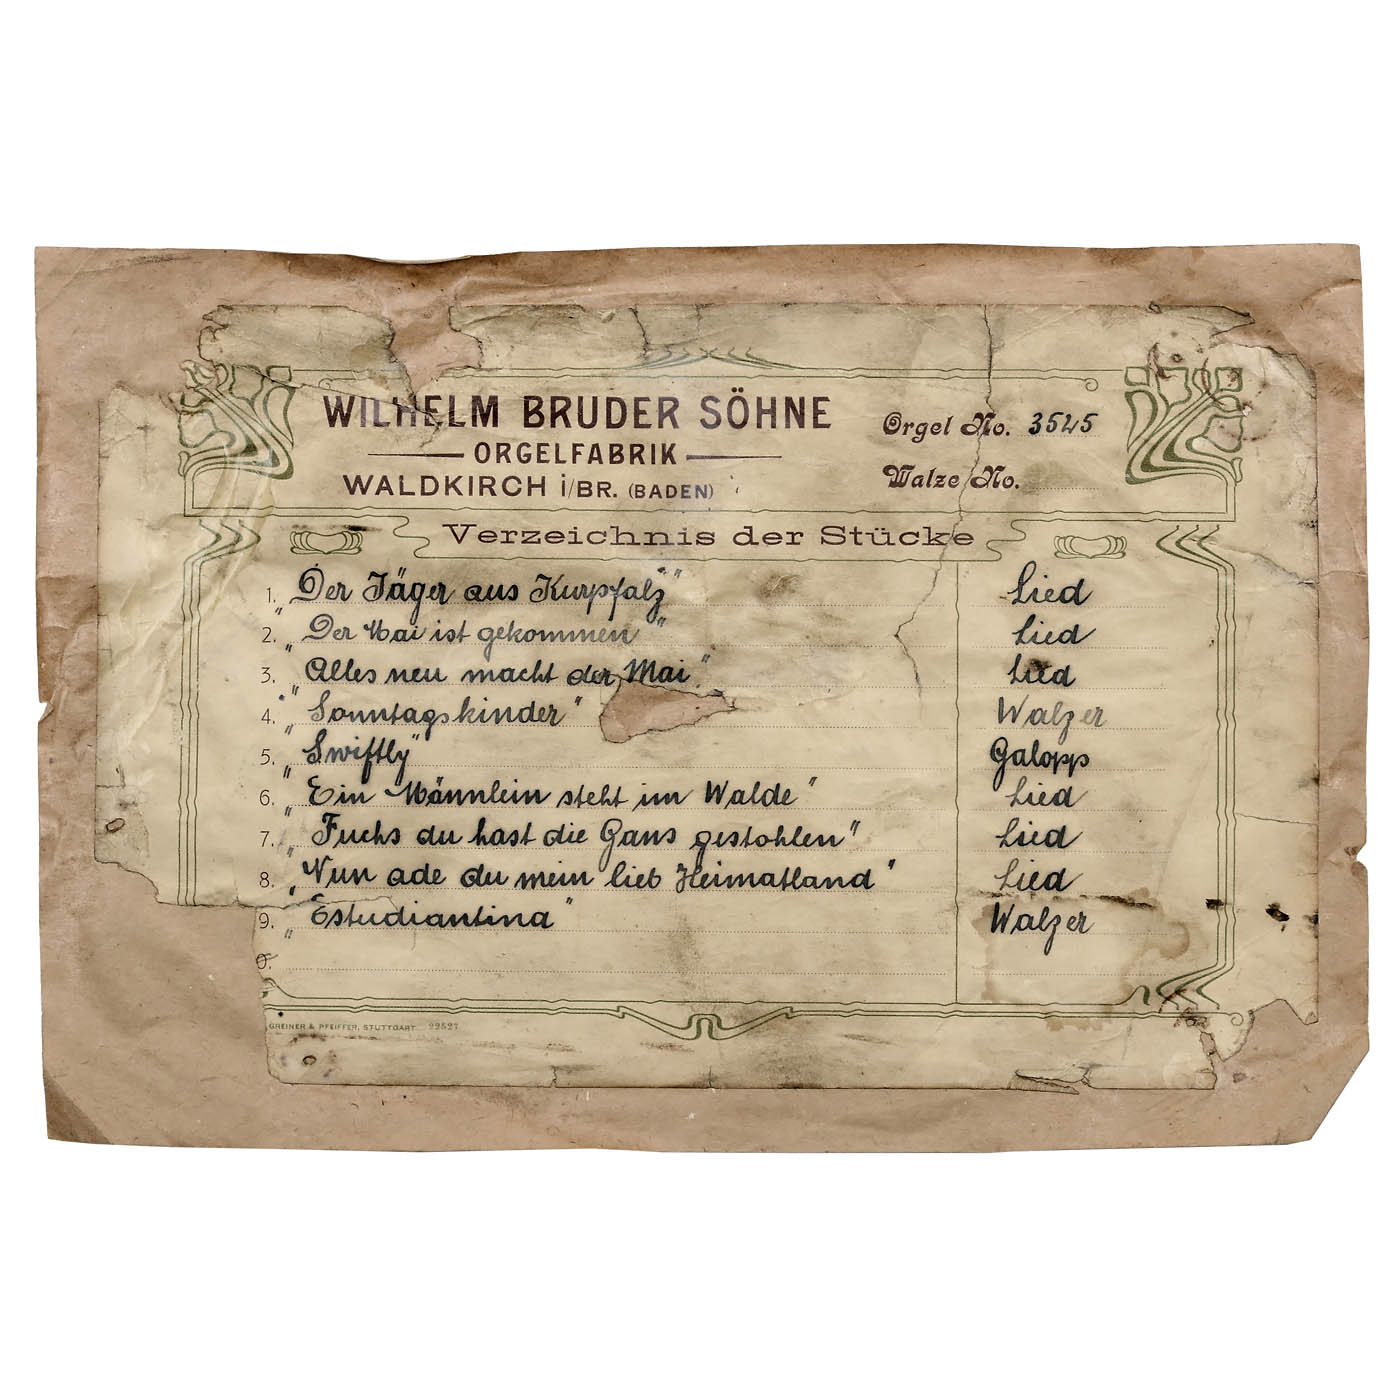 WILHELM BRUDER SÖHNE
ORGELFABRIK
WALDKIRCH i/BR. (BADEN)
Orgel No. 3545
Walze No.
Verzeichnis der Stücke
1. „Der Jäger aus Kurpfalz" Lied
2. „Der Mai ist gekommen" Lied
3. „Alles neu macht der Mai" Lied
4. „Sonntagskinder" Walzer
5. „Swiftly" Galopp
6. „Ein Männlein steht im Walde" Lied
7. „Fuchs du hast die Gans gestohlen" Lied
8. „Nun ade du mein lieb Heimatland" Lied
9. „Estudiantina" Walzer
0.
GREINER & PFEIFFER, STUTTGART. 22527